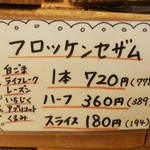 フロッケンセザム
白ごま
ライフレーク
レーズン
いちじく
アプリコット
くるみ
1本 720円(777
ハーフ 360円(389
スライス 180円(194